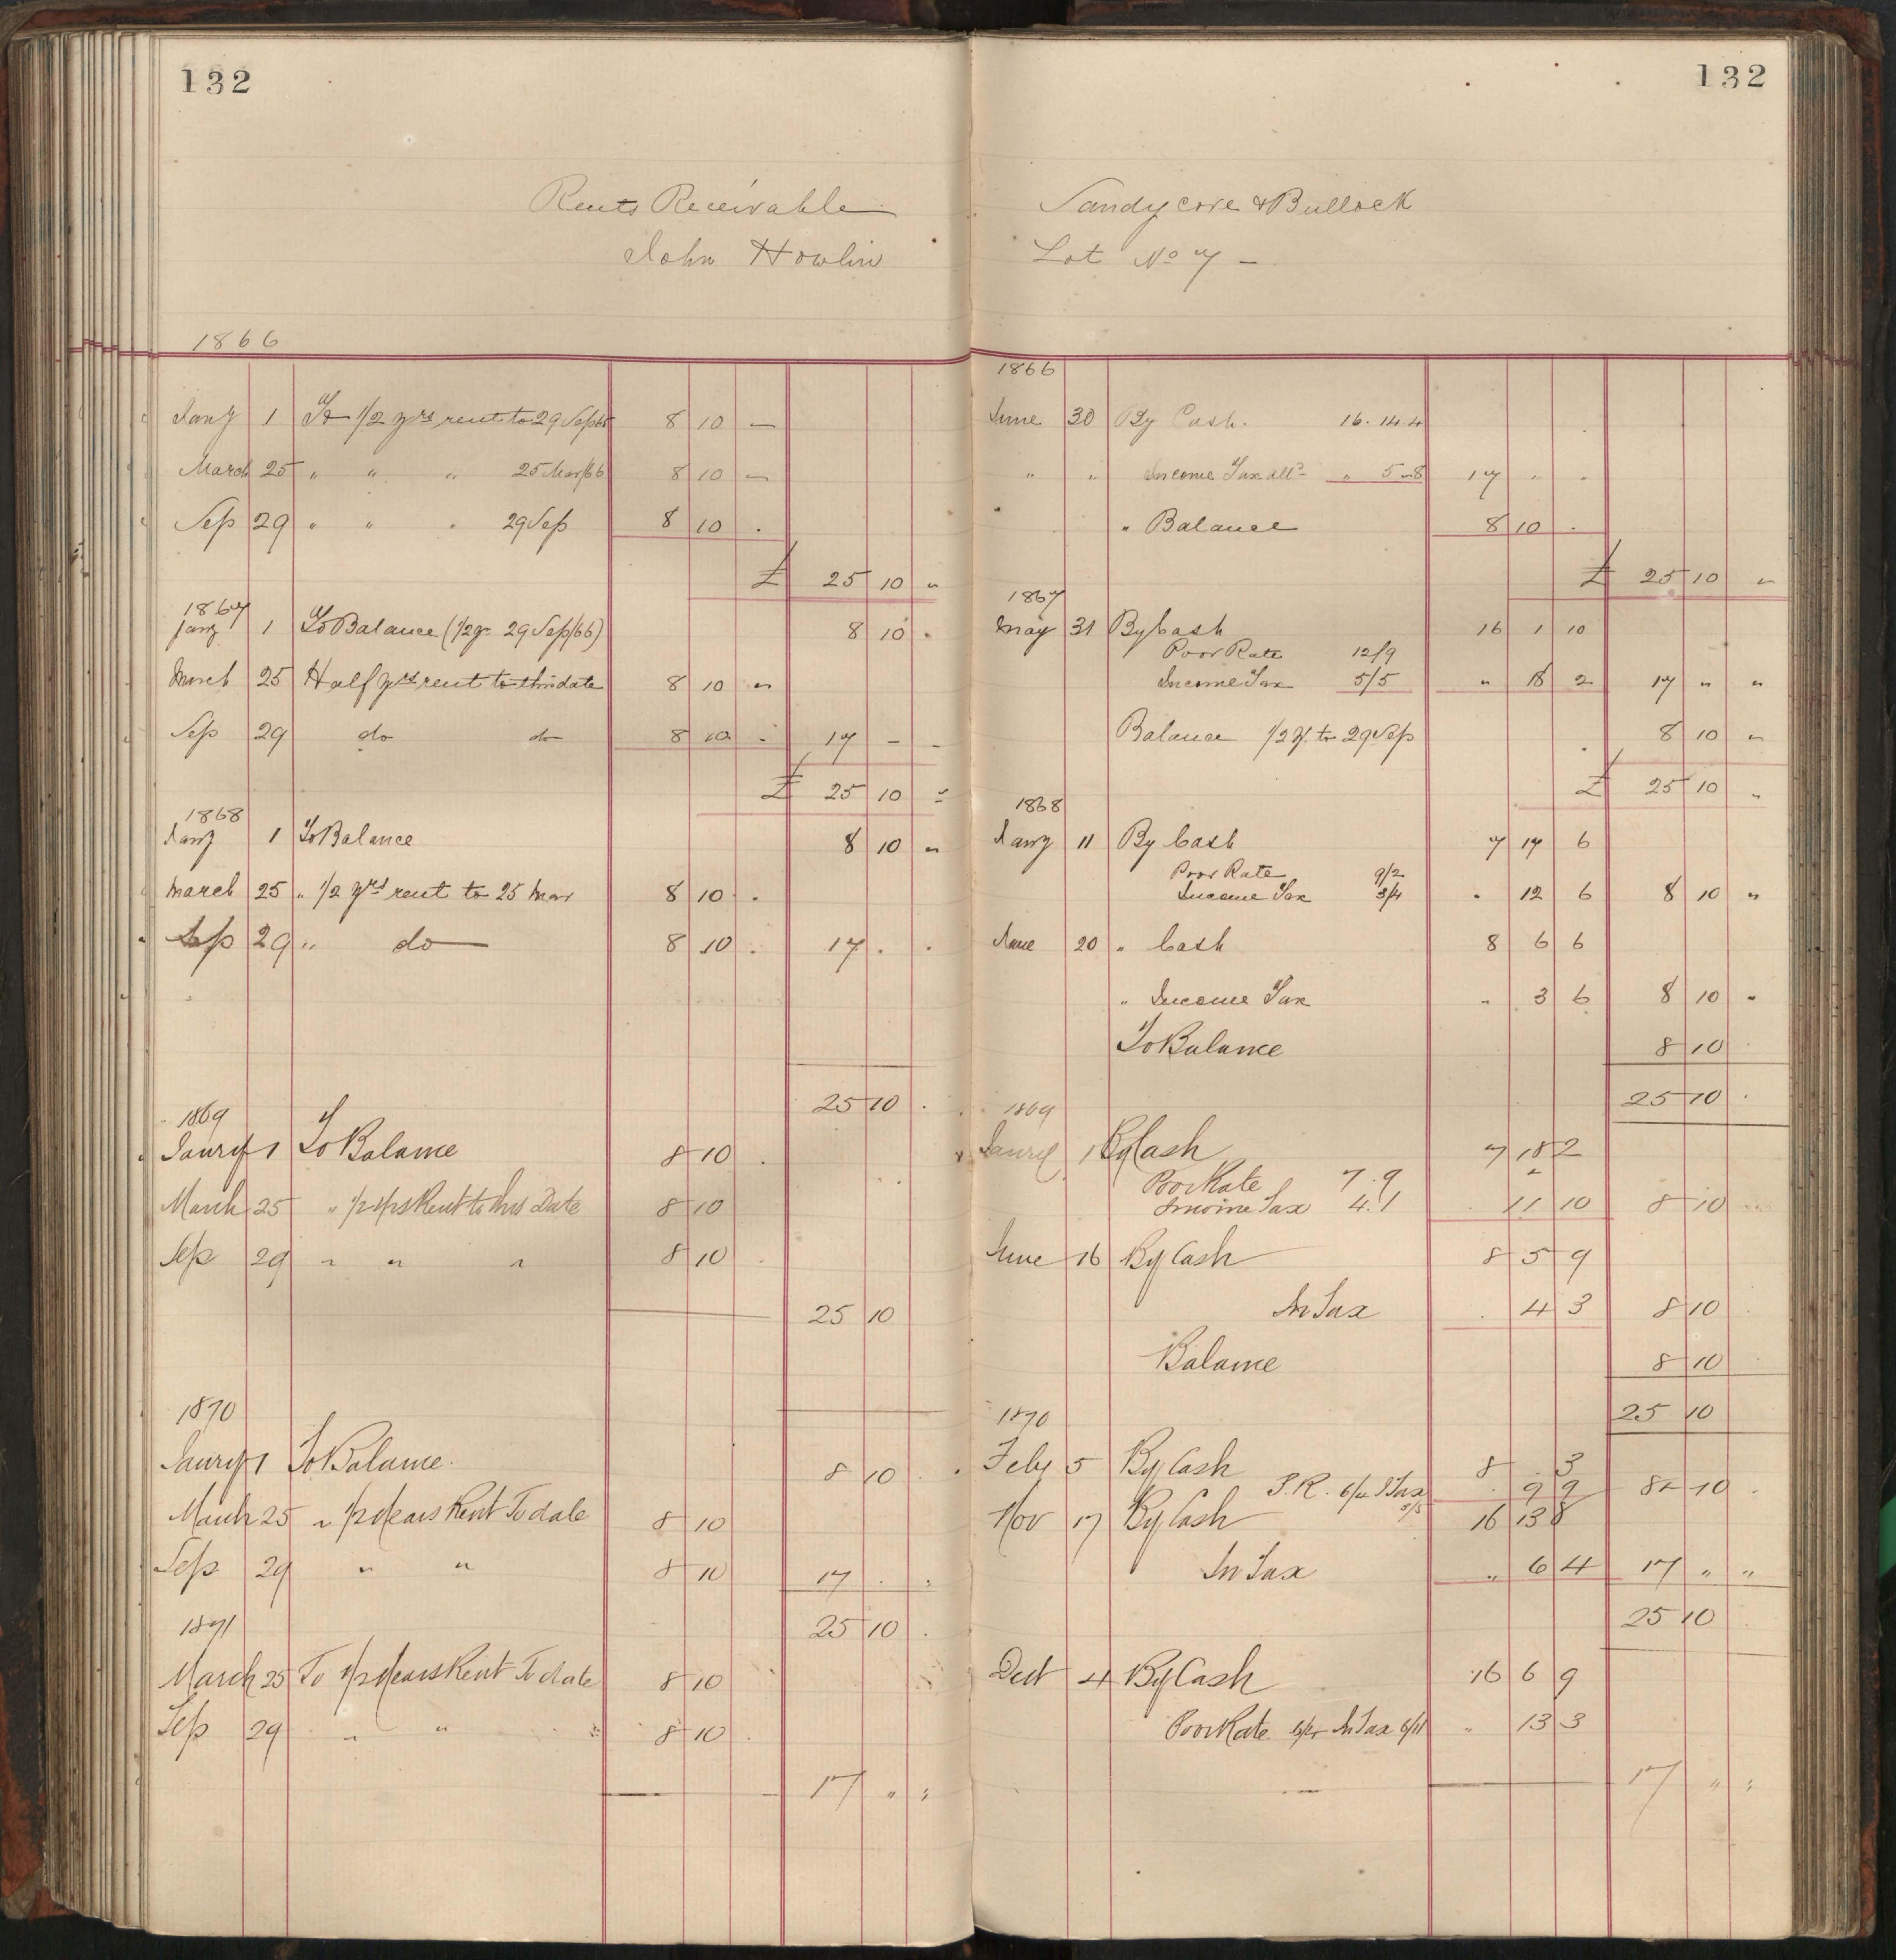 132
Rents Receivable
John Howlin
1866
Jany 1 To 1/2 yrs rent to 29 Sep 65 8 10 —
March 25 " " " 25 Mar/66 8 10 —
Sep 29 " " " 29 Sep 8 10 .
£ 25 10 "
1867
Jany 1 To Balance (1/2 yr 29 Sep/66) 8 10 .
March 25 Half yrs rent to this date 8 10 "
Sep 29 do do 8 10 . 17 – –
£ 25 10 "
1868
Jany 1 To Balance 8 10 "
March 25 " 1/2 yrs rent to 25 Mar 8 10 .
Sep 29 " do 8 10 . 17 . .
25 10 .
1869
Jany 1 To Balance 8 10 .
March 25 " 1/2 yrs Rent to this Date 8 10
Sep 29 " " " 8 10 .
25 10
1870
Jany 1 To Balance 8 10 .
March 25 " 1/2 Years Rent To date 8 10
Sep 29 " " 8 10 17 . .
25 10 .
1871
March 25 To 1/2 Years Rent To date 8 10
Sep 29 " " " 8 10 .
17 " "
132
Sandycove & Bullock
Lot No 7 –
1866
June 30 By Cash. 16. 14. 4
" " Income Tax all? " 5 " 8 17 " "
" Balance 8 10 .
£ 25 10 "
1867
May 31 By Cash 16 1 10
Poor Rate 12/9
Income Tax 5/5 " 18 2 17 " "
Balance 1/2 y. to 29 Sep 8 10 "
£ 25 10 "
1868
Jany 11 By Cash 7 17 6
Poor Rate 9/2
Income Tax 3/4 . 12 6 8 10 "
June 20 " Cash 8 6 6
" Income Tax " 3 6 8 10 "
To Balance 8 10
25 10 .
1869
Jany 1 By Cash 7 18 2
Poor Rate 7. 9
Income Tax 4. 1 11 10 8 10
June 16 By Cash 8 5 9
In Tax . 4 3 8 10 .
Balance 8 10
25 10
1870
Feby 5 By Cash 8 . 3
P. R. 6/4 I Tax 3/5 . 9 9 8 10 .
Nov 17 By Cash 16 13 8
In Tax " 6 4 17 " "
25 10
Dect 4 By Cash 16 6 9
Poor Rate 6/4 In Tax 6/11 " 13 3
17 " "